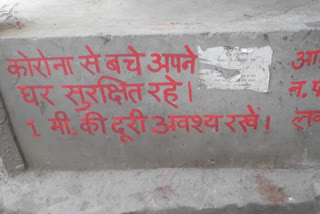 कोरोना से बचे अपने
घर सुरक्षित रहे।
1 मी. की दूरी अवश्य रखें।
आ
न.प
लक